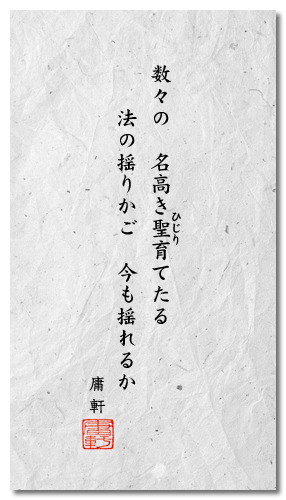 数々の　名高き聖育てたる
ひじり
法の揺りかご　今も揺れるか
庸軒
庸軒